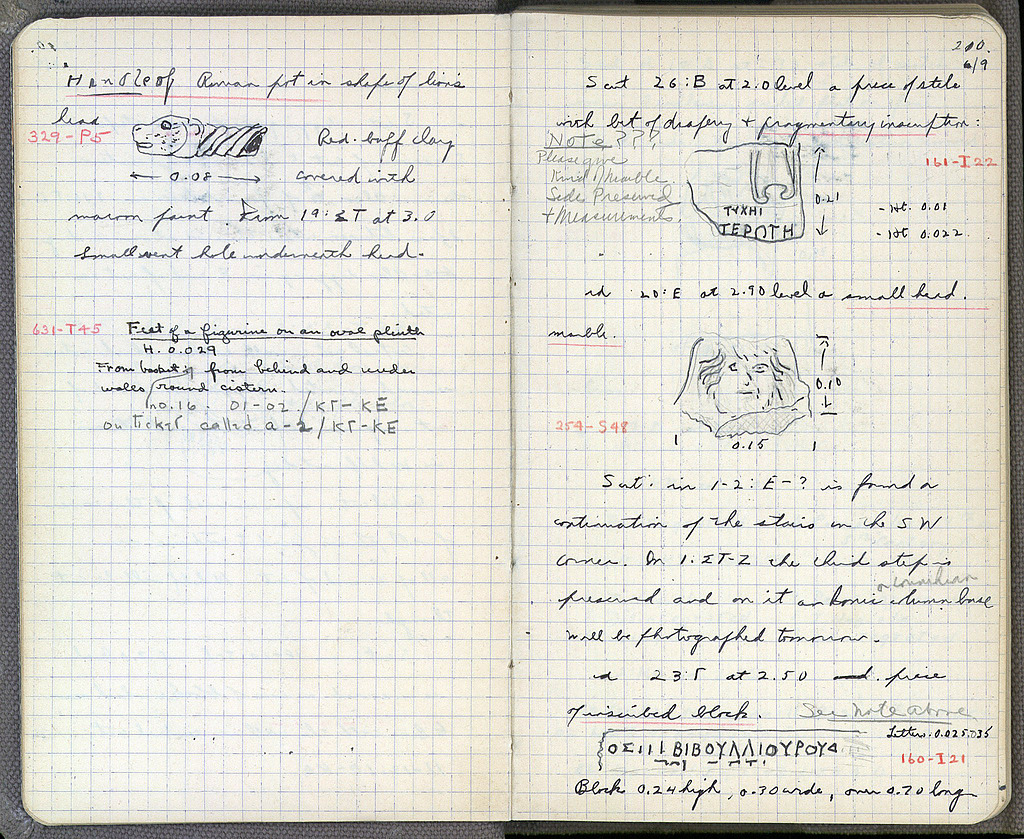 Handle of Roman pot in shape of lion's
head
329-P5
Red-buff clay
0.08
covered with
maroon paint. From 19:ΣT at 3.0
Small vent hole underneath head.
631-T45 Feet of a figurine on an oval plinth
H. 0.029
From basket of from behind and under
walls round cistern.
no.16. 01-02/ΚΓ-ΚΕ
on ticket called a-2/ΚΓ-ΚΕ
200.
6/9
Sect 26:B at 2.0 level a piece of stele
with bit of drapery + fragmentary inscription:
Note???
Please give
Kind of Marble
Side Preserved
+ Measurements.
161-I22
0.21
ΤΥΧΗΙ
ΤΕΡΩΤΗ
- Ht. 0.01
- Ht 0.022
id 20:E at 2.90 level a small head.
marble.
0.10
254-S48
0.15
Sect. in 1-2:E-? is found a
continuation of the stairs in the SW
corner. In 1:ΣT-Z the third step is
or Corinthian
preserved and on it an Ionic column base
will be photographed tomorrow.
id 23:Γ at 2.50 piece
of inscribed block. See note above
Letters. 0.025, 035
ΟΣΙΙΙΒΙΒΟΥΛΛΙΟΥΡΟΥΔ
160-I21
Block 0.24 high, 0.30 wide, over 0.70 long